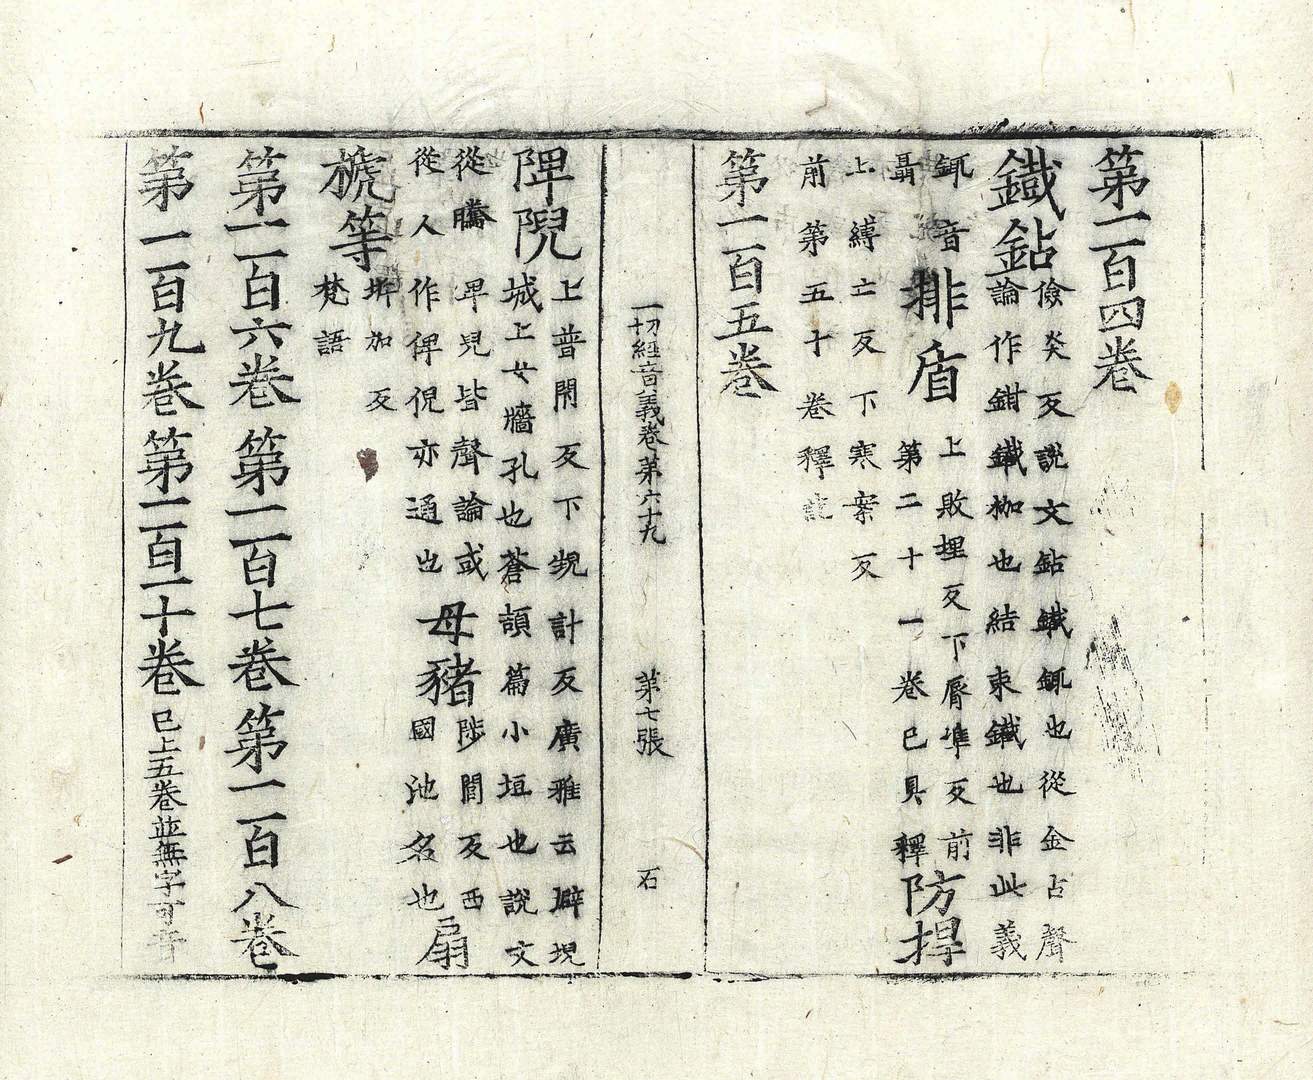 第一百四卷
鐵鉆
儉炎反說文鉆鐵鉔也從金占聲
論作鉗鐵枷也結束鐵也非此義
鉔音
聶
排盾
上敗埋反下脣準反前
第二十一卷已具釋
防捍
上縛亡反下寒案反
前第五十卷釋訖
第一百五卷
一切經音義卷第六十九 第七張 石
陴
上普閇反下計反廣雅云壀堄
城上女墻孔也蒼頡篇小垣也說文
從卑兒皆聲論或
從人作俾倪亦通也
母豬
陟閭反西
國池名也
扇
搋等
坼加反
梵語
第一百六卷 第一百七卷 第一百八卷
第一百九卷 第一百一十卷 已上五卷並無字可音